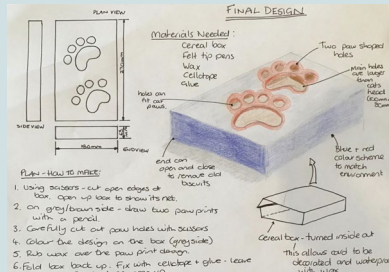 FINAL DESIGN
PLAN VIEW
Materials Needed:
Cereal box
Felt tip pens
Wax
Cellotape
Glue
Two paw shaped
holes
Main holes
are larger
than
cats
head
holes can
fit cat
paws.
SIDE VIEW
END VIEW
end can
open and close
to remove old
biscuits
Blue + red
colour scheme
to match
environment
PLAN - HOW TO MAKE:
1. Using scissors - cut open edges of
box. Open up box to show its net.
2. On grey/brown side - draw two paw prints
with a pencil.
3. Carefully cut out paw holes with scissors
4. Colour the design on the box (grey side)
5. Rub wax over the paw print design.
6. Fold box back up. Fix with cellotape + glue - leave
Cereal box - turned inside out
This allows card to be
decorated and waterproof